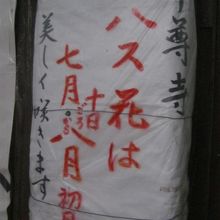 尊寺
ハス花は
七月十日八月初
美しく咲きます